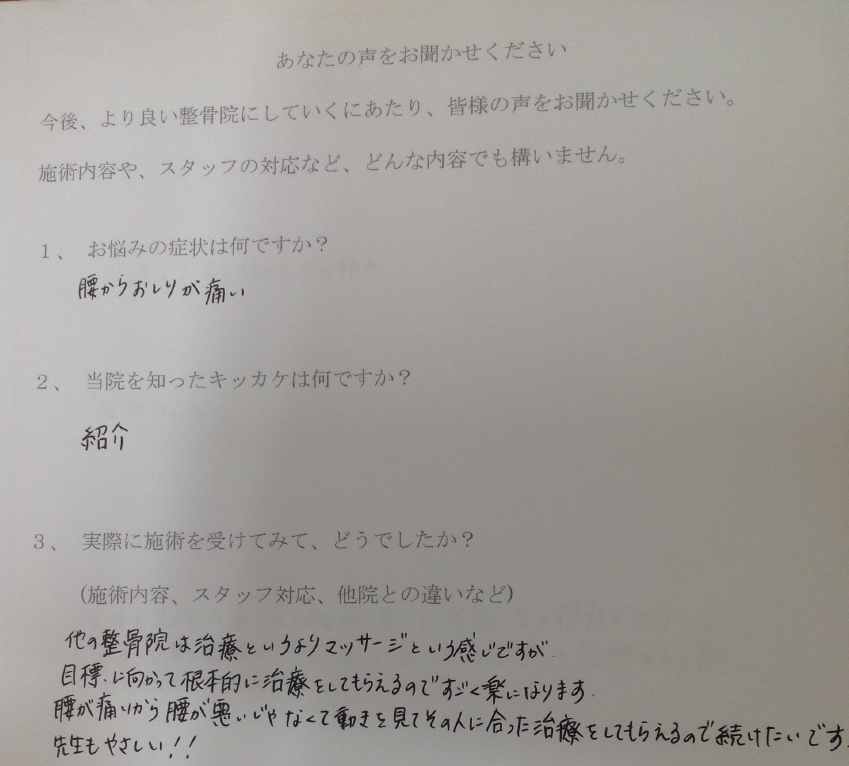 あなたの声をお聞かせください
今後、より良い整骨院にしていくにあたり、皆様の声をお聞かせください。
施術内容や、スタッフの対応など、どんな内容でも構いません。
1、 お悩みの症状は何ですか？
腰からおしりが痛い
2、 当院を知ったキッカケは何ですか？
紹介
3、 実際に施術を受けてみて、どうでしたか？
(施術内容、スタッフ対応、他院との違いなど)
他の整骨院は治療というよりマッサージという感じですが、
目標に向かって根本的に治療をしてもらえるのですごく楽になります。
腰が痛いから腰が悪いじゃなくて動きを見てその人に合った治療をしてもらえるので続けたいです。
先生もやさしい!!